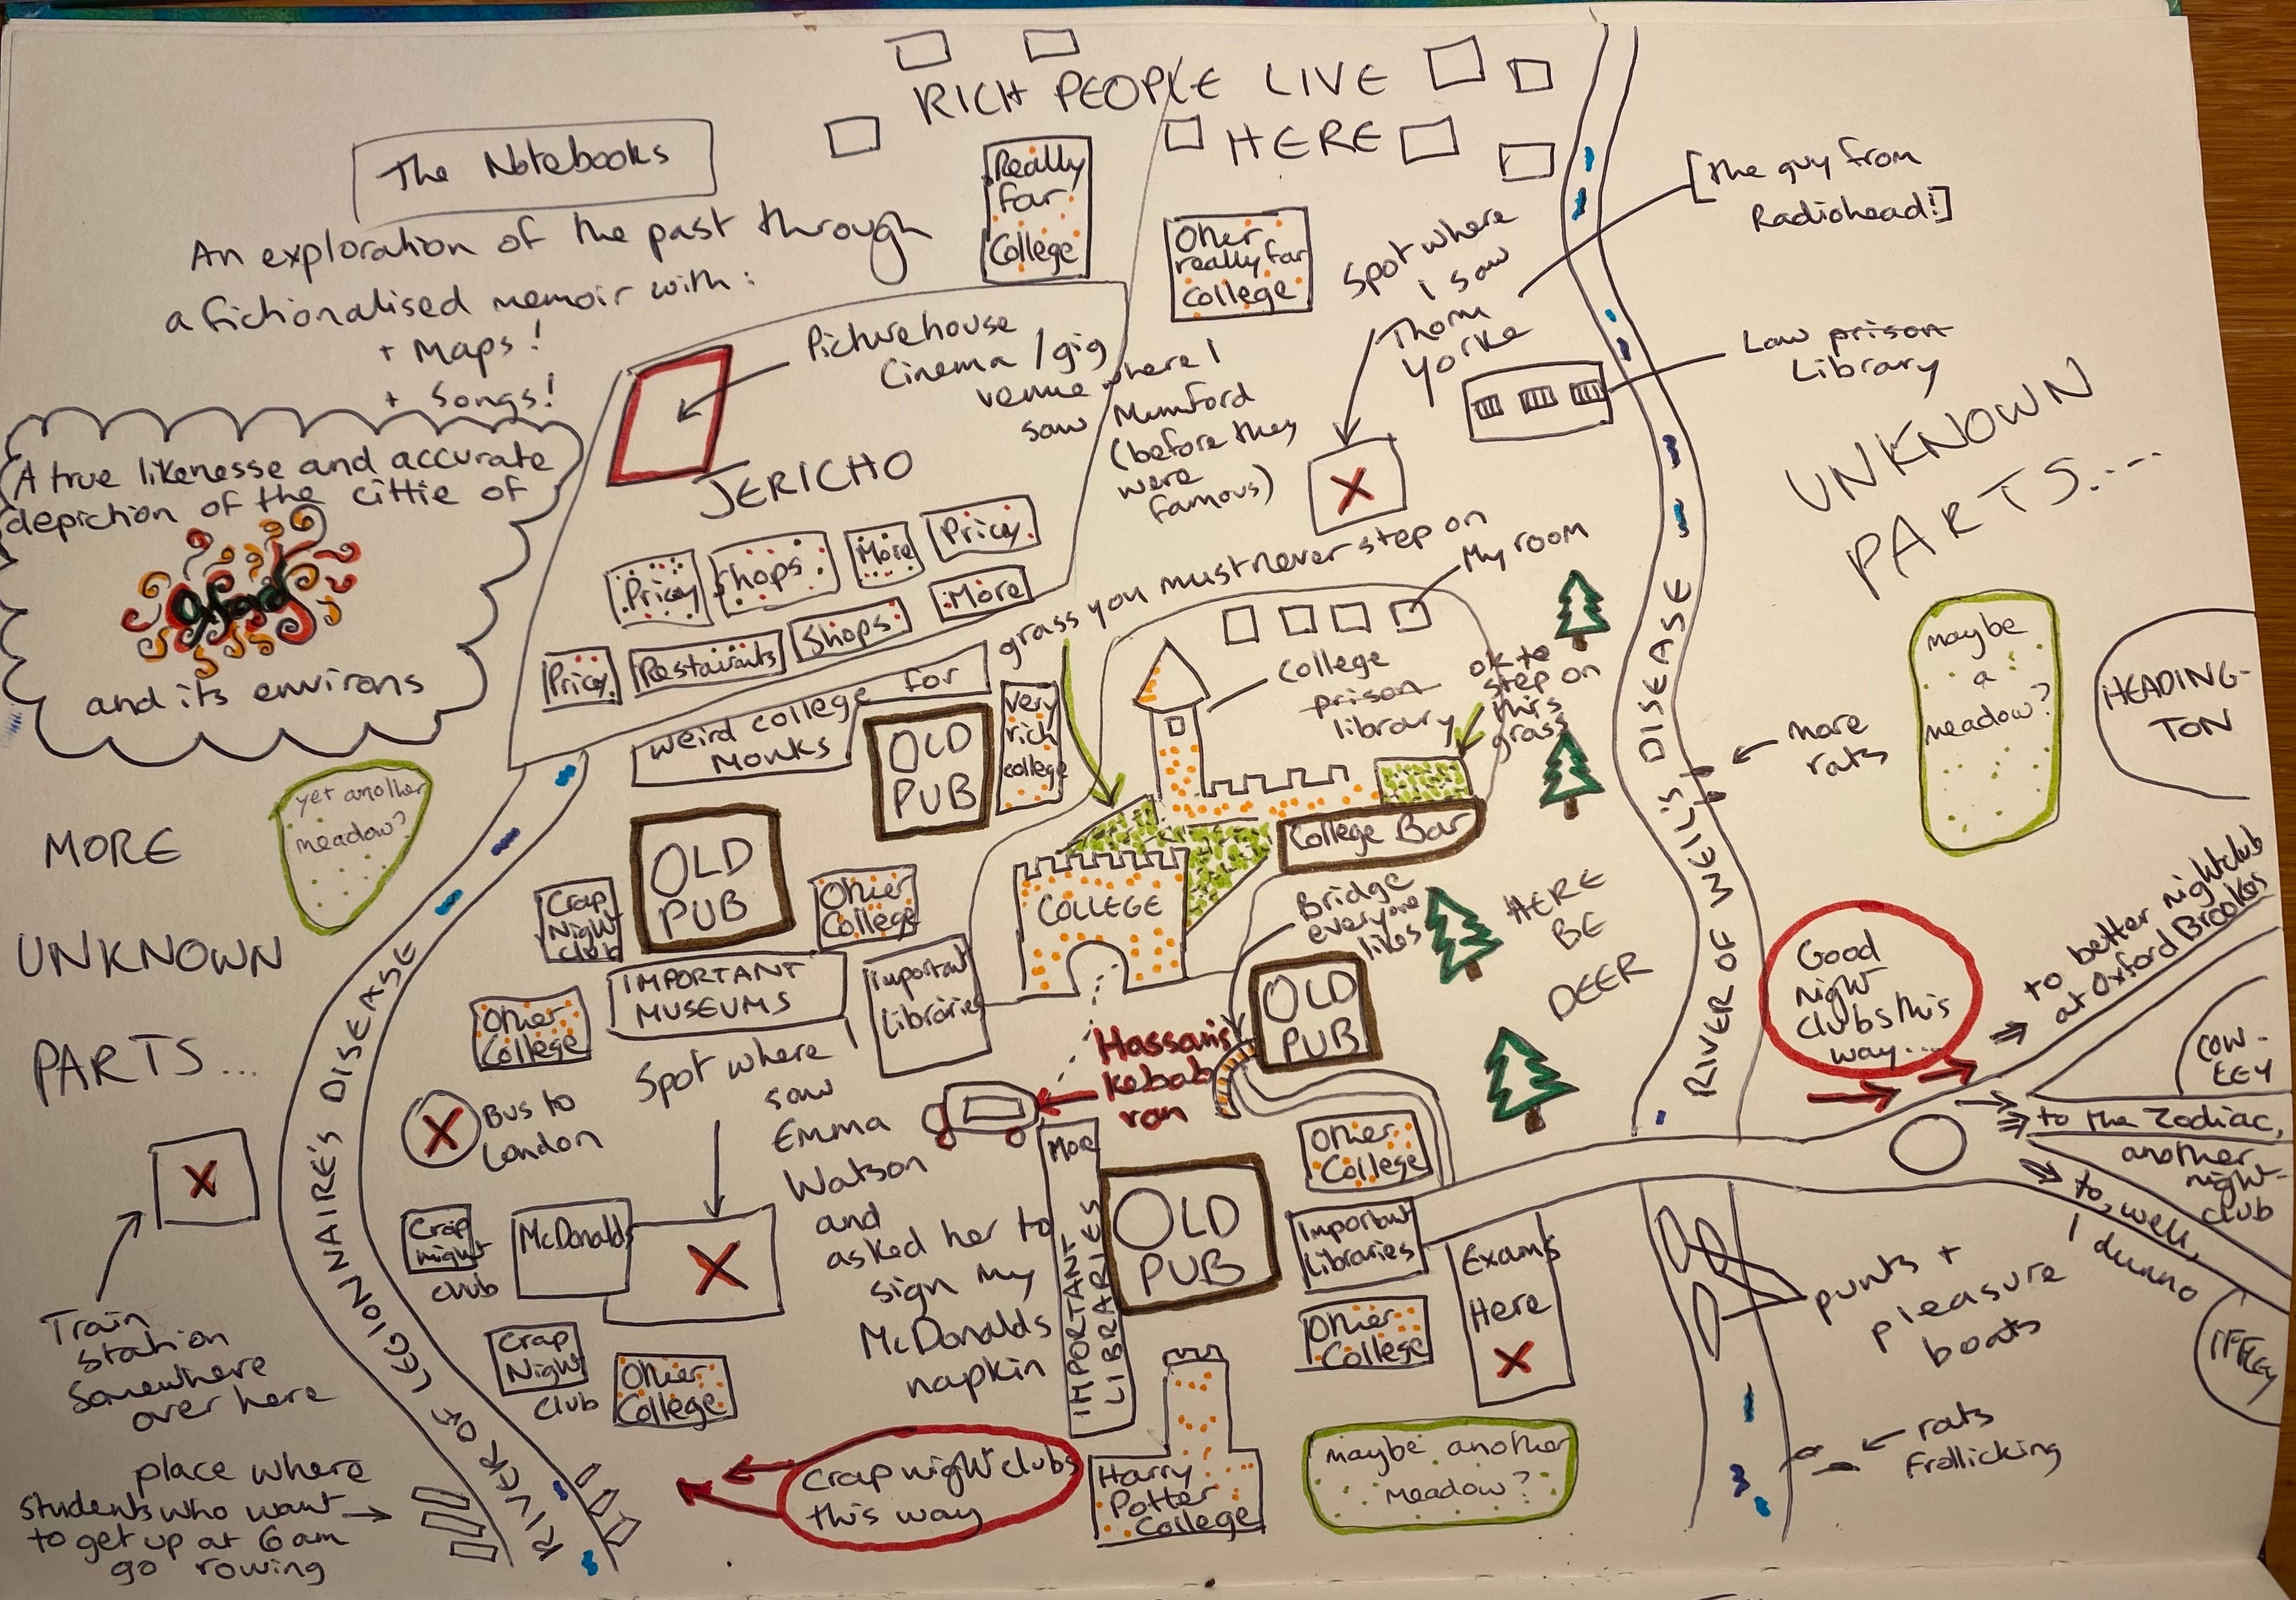 RICH PEOPLE LIVE
HERE
The Notebooks
An exploration of the past through
a fictionalised memoir with:
+ Maps!
+ Songs!
A true likenesse and accurate
depiction of the cittie of
Oxford
and its environs
Really
far
College
Other
really far
College
Spot where
I saw
Thom
Yorke
[the guy from
Radiohead!]
Law prison
Library
UNKNOWN
PARTS....
Picturehouse
Cinema / gig
venue where I
saw Mumford
(before they
were
famous)
JERICHO
Pricey
Shops
More
Pricey
Pricey
Restaurants
Shops
More
grass you must never step on
My room
College
prison
library
ok to
step on
this
grass
weird college for
Monks
OLD
PUB
very
rich
college
OLD
PUB
Crap
Night
club
Other
College
IMPORTANT
MUSEUMS
Important
libraries
Other
College
COLLEGE
College Bar
Bridge
everyone
likes
OLD
PUB
HERE
BE
DEER
RIVER OF WEILL'S DISEASE
more
rats
maybe
a
meadow?
HEADING-
TON
yet another
meadow?
MORE
UNKNOWN
PARTS...
RIVER OF LEGIONNAIRE'S DISEASE
Good
night
clubs this
way...
to better nightclub
at Oxford Brookes
COW-
LEY
to the Zodiac,
another
night-
club
to, well,
I dunno
IFFLEY
Hassan's
kebab
van
Spot where I
saw
Emma
Watson
and
asked her to
sign my
McDonalds
napkin
Bus to
London
Crap
night
club
McDonalds
Crap
Night
club
Other
College
More
IMPORTANT
LIBRARIES
OLD
PUB
Other
College
Important
libraries
Other
College
Exams
Here
punts +
pleasure
boats
rats
frollicking
Train
station
Somewhere
over here
place where
students who want
to get up at 6am
go rowing
Crap night clubs
this way
Harry
Potter
College
maybe another
meadow?